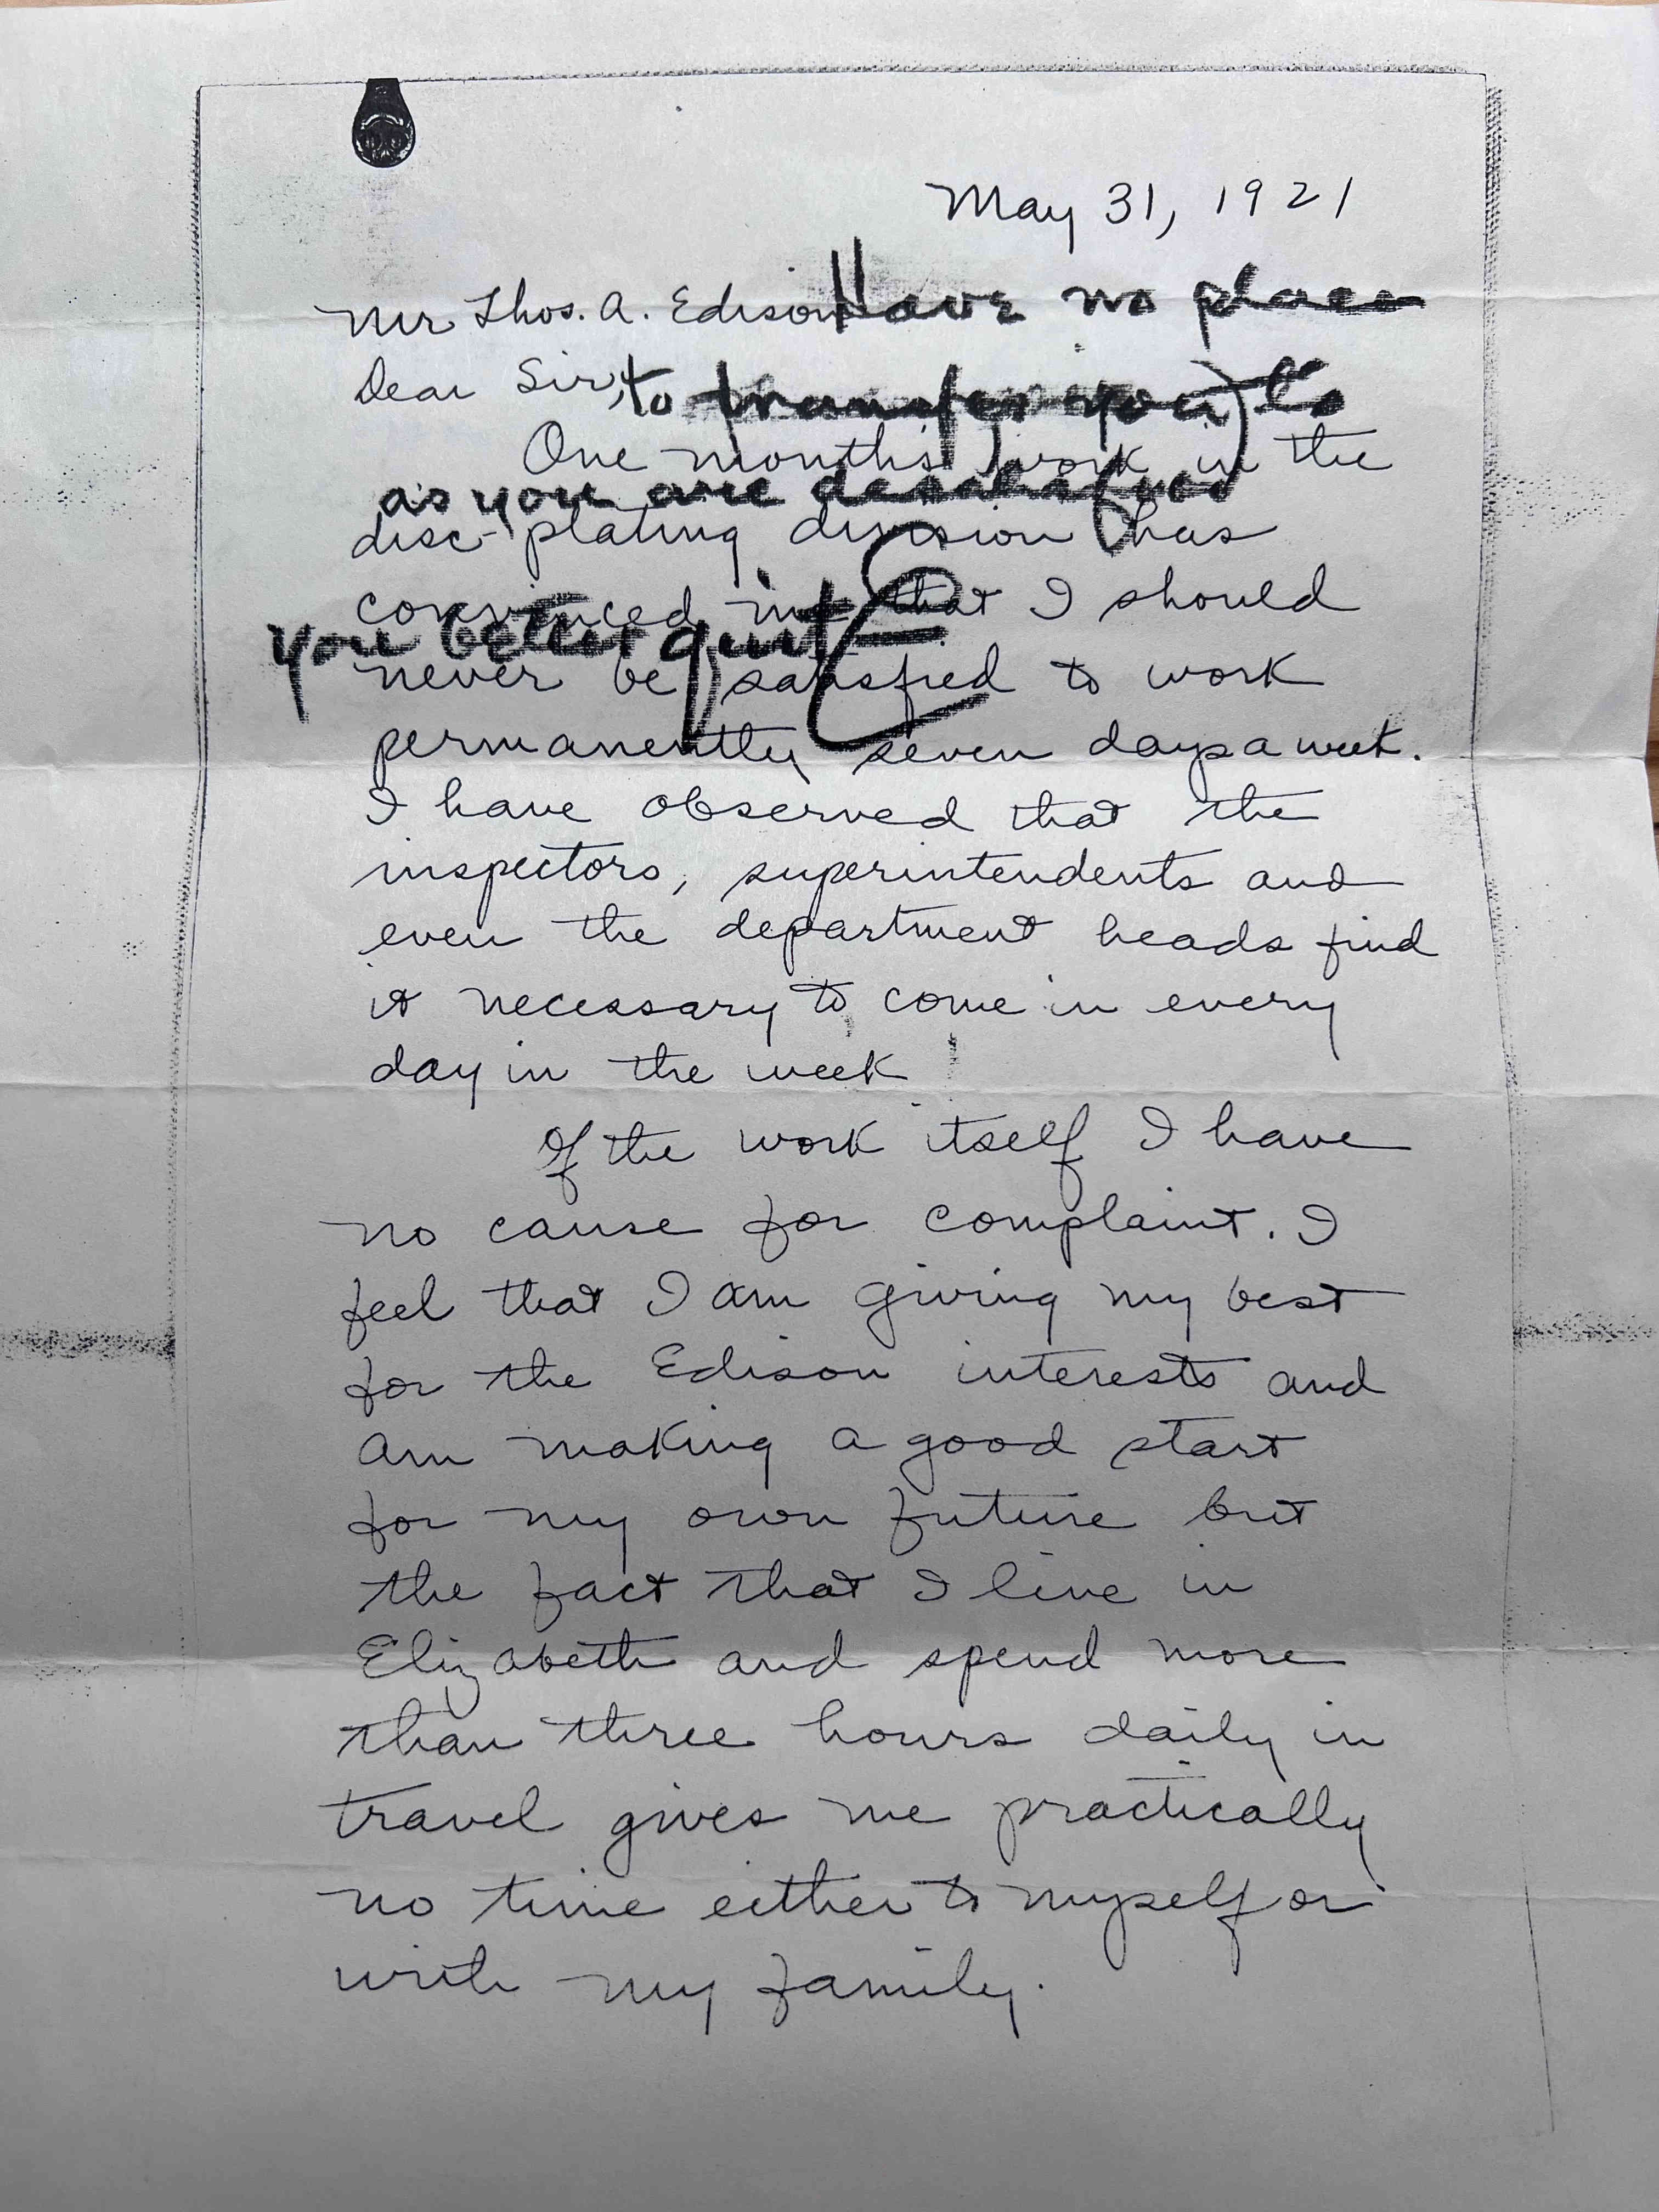 May 31, 1921
Mr Thos. A. Edison
Have no place
Dear Sir,
to transfer you to
One months' work in the
as you are desatisfied
disc-plating division has
convinced me that I should
you better quit E
never be satisfied to work
permanently seven days a week.
I have observed that the
inspectors, superintendents and
even the department heads find
it necessary to come in every
day in the week
Of the work itself I have
no cause for complaint. I
feel that I am giving my best
for the Edison interests and
am making a good start
for my own future but
the fact that I live in
Elizabeth and spend more
than three hours daily in
travel gives me practically
no time either to myself or
with my family.